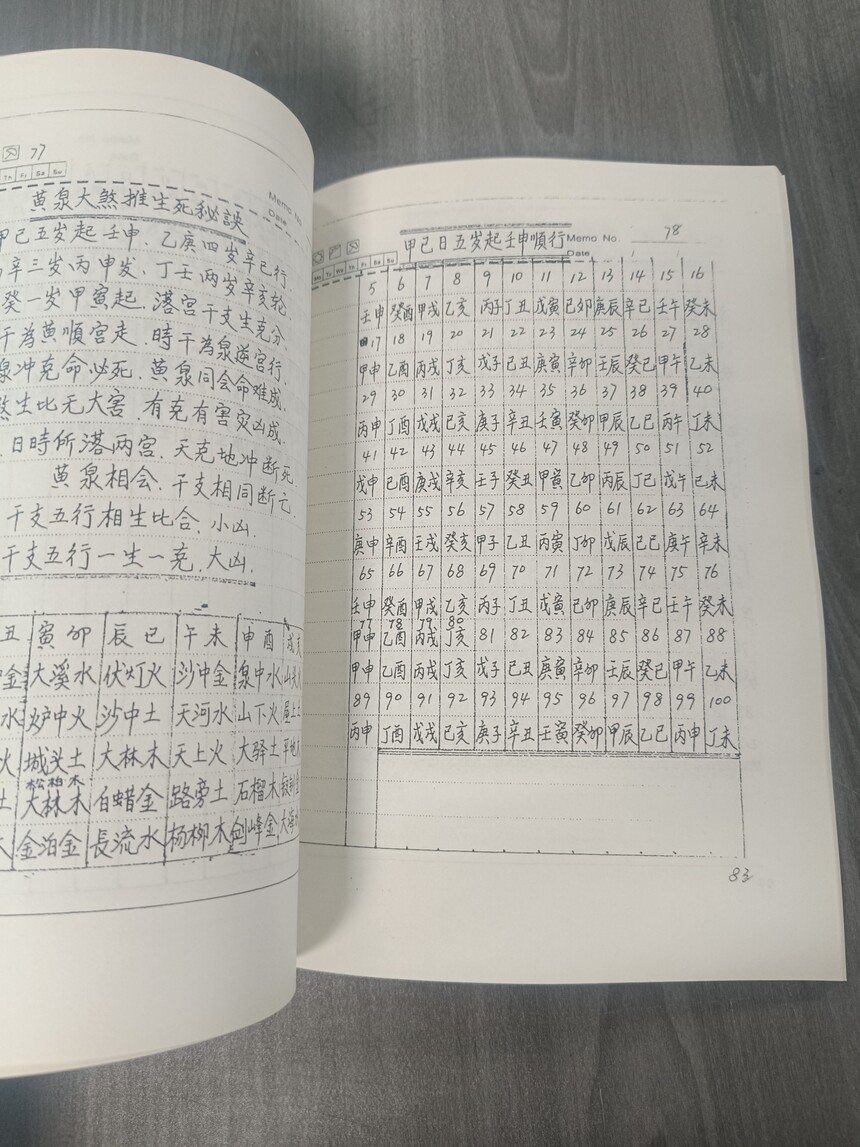 77
Th Fr Sa Su
Memo No
Date
黄泉大煞推生死秘诀
甲己五岁起壬申．乙庚四岁辛巳行．
辛三岁、丙申发、丁壬、两岁辛亥轮．
癸一岁甲寅起．落宫干支生克分．
干為黄順宫走．時干為泉逆宫行．
冲克命必死．黄泉同会命难成．
煞生比无大害．有克有害灾凶成．
日時所落两宫．天克地冲断死
黄泉相会．干支相同断亡．
干支五行相生比合．小凶．
干支五行一生一克．大凶．
丑 寅卯 辰巳 午未 申酉 戌亥
金 大溪水 伏灯火 沙中金 泉中水 山
水 炉中火 沙中土 天河水 山下火 屋上
火 城头土 大林木 天上火 大驿土 平地
松柏木
土 大林木 白蜡金 路旁土 石榴木
金泊金 長流水 杨柳木 剑峰金 大海
甲己日五岁起壬申順行
Memo No. 78
Date / /
Mo Tu We Th Fr Sa Su
5 6 7 8 9 10 11 12 13 14 15 16
壬申 癸酉 甲戌 乙亥 丙子 丁丑 戊寅 己卯 庚辰 辛巳 壬午 癸未
17 18 19 20 21 22 23 24 25 26 27 28
甲申 乙酉 丙戌 丁亥 戊子 己丑 庚寅 辛卯 壬辰 癸巳 甲午 乙未
29 30 31 32 33 34 35 36 37 38 39 40
丙申 丁酉 戊戌 己亥 庚子 辛丑 壬寅 癸卯 甲辰 乙巳 丙午 丁未
41 42 43 44 45 46 47 48 49 50 51 52
戊申 己酉 庚戌 辛亥 壬子 癸丑 甲寅 乙卯 丙辰 丁巳 戊午 己未
53 54 55 56 57 58 59 60 61 62 63 64
庚申 辛酉 壬戌 癸亥 甲子 乙丑 丙寅 丁卯 戊辰 己巳 庚午 辛未
65 66 67 68 69 70 71 72 73 74 75 76
壬申 癸酉 甲戌 乙亥 丙子 丁丑 戊寅 己卯 庚辰 辛巳 壬午 癸未
77 78 79 80
甲申 乙酉 丙戌 丁亥 81 82 83 84 85 86 87 88
甲申 乙酉 丙戌 丁亥 戊子 己丑 庚寅 辛卯 壬辰 癸巳 甲午 乙未
89 90 91 92 93 94 95 96 97 98 99 100
丙申 丁酉 戊戌 己亥 庚子 辛丑 壬寅 癸卯 甲辰 乙巳 丙申 丁未
83